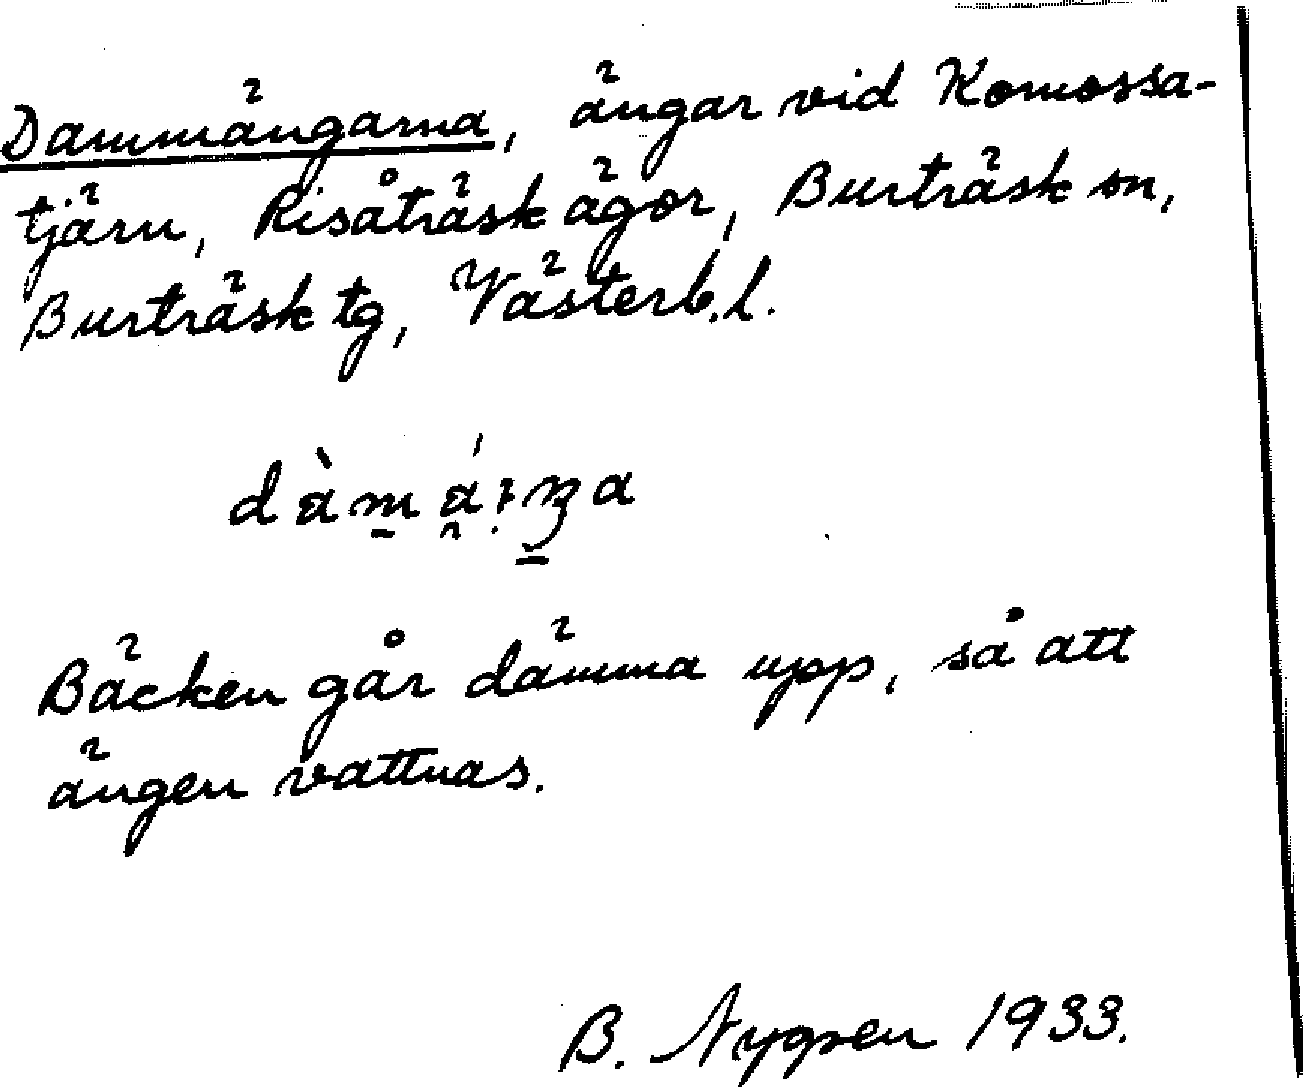 Dammängarna, ängar vid Komossa-
tjärn, Risåträsk ägor, Burträsk sn,
Burträsk tg, Västerb.l.
Bäcken går dämma upp, så att
ängen vattnas.
B. Nygren 1933.